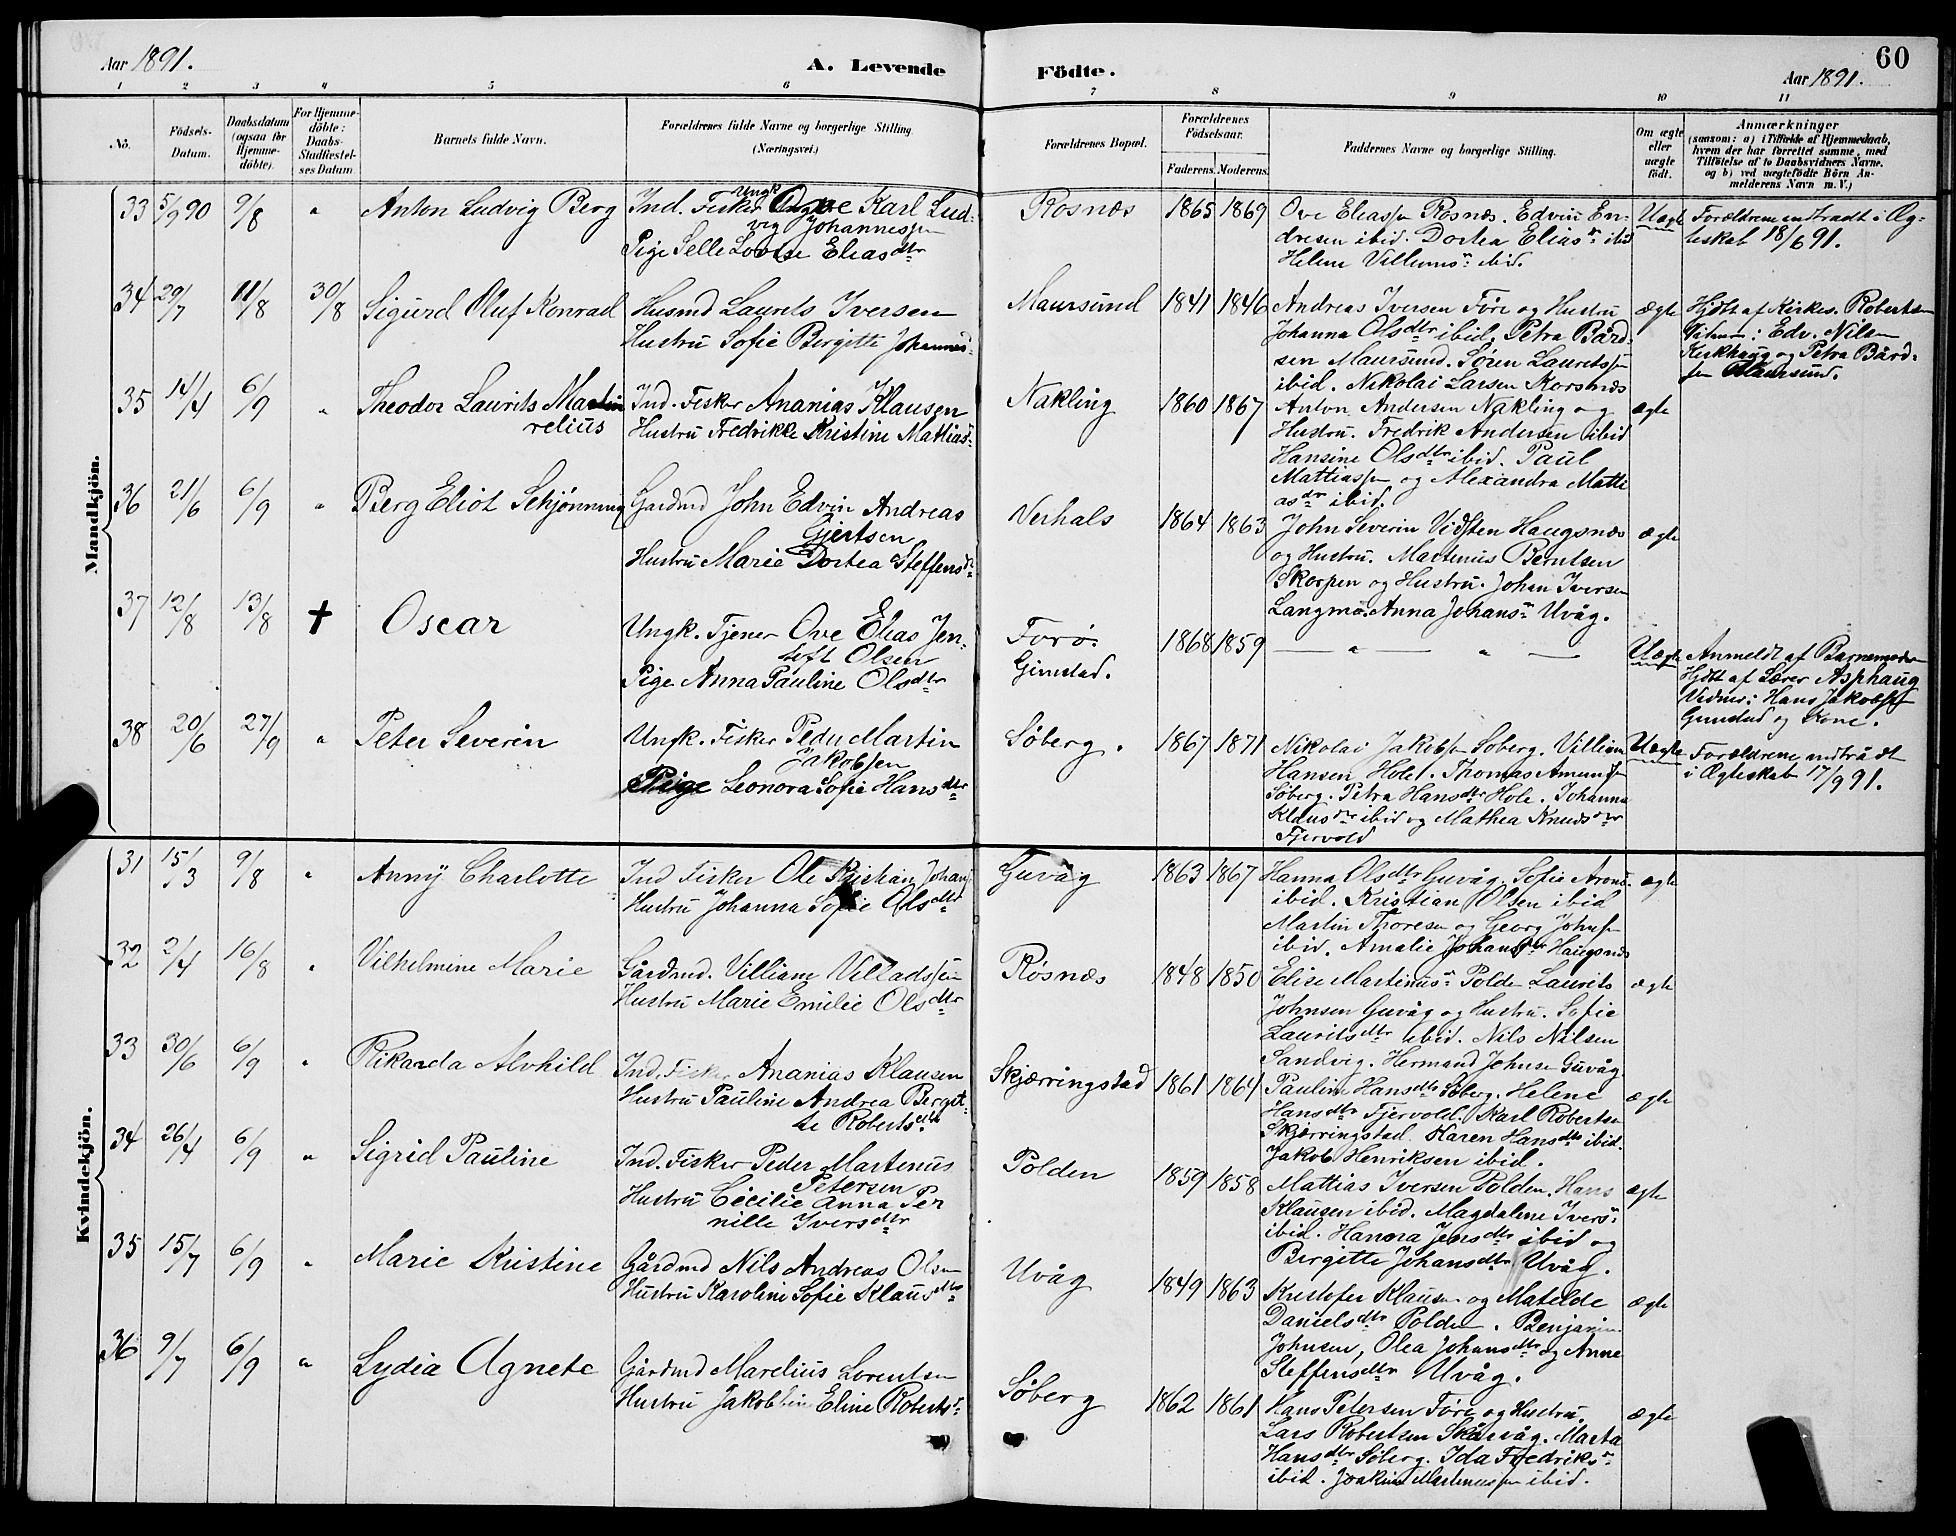 60
Aar 1891.
A. Levende Födte.
Aar 1891.
1 2 3 4 5 6 7 8 9 10 11
No.
Födsels-Datum.
Daabsdatum (ogsaa for Hjemmedöbte).
For Hjemmedöbte: Daabs-Stadfæstelses Datum
Barnets fulde Navn.
Forældrenes fulde Navne og borgerlige Stilling. (Næringsvei.)
Forældrenes Bopæl.
Forældrenes Födselsaar.
Faderens. Moderens.
Faddernes Navne og borgerlige Stilling.
Om ægte eller uægte födt.
Anmærkninger
(saasom: a) i Tilfælde af Hjemmedaab,
hvem der har forrettet samme, med
Tilföielse af to Daabsvidners Navne,
og b) ved uægtefödte Börn Anmelderens Navn m. V.)
Mandkjön.
33 5/9 90 9/8 " Anton Ludvig Berg
Ind. Fisker Ungk Ove Karl Lud-
vig Johannessen
Pige Selle Lovise Eliasdtr
Rosnæs 1865 1869
Ove Eliassen Rosnæs. Edvin En-
dresen ibid. Dortea Eliasdr ibid
Helene Villumsdr ibid.
Uægte
Forældrene indtradt i Æg-
teskab 18/6 91.
34 29/7 11/8 30/8 Sigurd Oluf Konrad
Husmd Laurits Iversen
Hustru Sofie Bergitte Johannesd
Maursund 1841 1846
Andreas Iversen Føre og Hustru
Johanna Olsdtr ibid. Petra Bård-
sen Maursund. Sören Lauritssen
ibid. Nikolai Larsen Korsnæs
ægte
Hjdt af Kirkes. Robertsen
Vitner: Edv. Nilsen
Kirkhaug og Petra Bård-
sen Maursund.
35 14/4 6/9 " Theodor Laurits Martin
relius
Ind. Fisker Ananias Klausen
Hustru Fredrikke Kristine Mattiasd
Nakling 1860 1867
Anton Andersen Nakling og
Hustru. Fredrik Andersen ibid
Hansine Olsdtr ibid. Paul
Mattiassen og Alexandra Matti
asdr ibid.
ægte
36 21/6 6/9 " Berg Eliot Schjønning
Gardmd John Edvin Andreas
Gjertsen
Hustru Marie Dortea Steffensdr
Verhals 1864 1863
John Severin Vidsten Haugsnæs
og Hustru. Martinus Berntsen
Skorpen og Hustru. Johan Iversen
Langmo. Anna Johansdr Uvåg.
ægte
37 12/8 13/8 ✝ Oscar
Ungk. Tjener Ove Elias Jen-
toft Olsen
Pige Anna Pauline Olsdtr
Forø
Gimstad.
1868 1859
— " — " —
Uægte
Anmeldt af Barnemoder
Hjdt af Lærer Asphaug
Vidner: Hans Jakobsen
Gimstad og Kone.
38 20/6 27/9 " Peter Severin
Ungk. Fisker Peder Martin
Jakobsen
Pige Leonora Sofie Hansdtr
Søberg. 1867 1871
Nikolai Jakobsen Søberg. Villiam
Hansen Hole. Thomas Amundsen
Søberg. Petra Hansdtr Hole. Johanna
Klausdtr ibid og Mathea Knudsdtr
Fjervold
Uægte
Forældrene indtrådt
i Ægteskab 17/9 91.
Kvindekjön.
31 15/3 9/8 " Anny Charlotte
Ind Fisker Ole Kristian Johans
Hustru Johanna Sofie Olsdtr
Guvåg 1863 1867
Hanna Olsdtr Guvåg. Sofie Aronsd.
ibid. Kristian Olsen ibid
Martin Thoresen og Georg Johnsen
ibid. Amalie Johansdtr Haugsnæs
ægte
32 2/4 16/8 " Vilhelmine Marie
Gårdmd. Villiam Villadssen
Hustru Marie Emilie Olsdtr
Røsnæs 1848 1850
Elise Martinusdr Polden Laurits
Johnsen Guvåg og Hustru. Sofie
Lauritsdtr ibid. Nils Nilsen
Sandvig. Hermand Johnsen Guvåg
ægte
33 30/6 6/9 " Rikarda Alvhild
Ind. Fisker Ananias Klausen
Hustru Pauline Andrea Bergit-
te Robertsdtr
Skjærringstad 1861 1864
Pauline Hansdtr Søberg. Helene
Hansdtr Fjervold. Karl Robertsen
Skjærringstad. Karen Hansdtr ibid.
Jakob Henriksen ibid.
ægte
34 26/4 6/9 " Sigrid Pauline
Ind. Fisker Peder Martenus
Petersen
Hustru Cecilie Anna Per
nille Iversdtr
Polden 1859 1858
Mattias Iversen Polden. Hans
Klausen ibid. Magdalene Iversd.
ibid. Hanna Jensdtr ibid og
Birgitte Johansdtr Uvåg.
ægte
35 15/7 6/9 " Marie Kristine
Gårdmd Nils Andreas Olsen
Hustru Karoline Sofie Klausdtr
Uvåg 1849 1863
Kristofer Klausen og Matilde
Danielsdtr Polden. Benjamin
Johnsen, Olea Johansdtr og Anne
Steffensdtr Uvåg.
ægte
36 9/7 6/9 " Lydia Agnete
Gårdmd Marelius Lorentsen
Hustru Jakobbine Eline Robertsd
Søberg 1862 1861
Hans Petersen Føre og Hustru.
Lars Robertsen Skårvåg. Marta
Hansdtr Søberg. Ida Fredriksdr
ibid. Joakim Martinussen ibid.
ægte